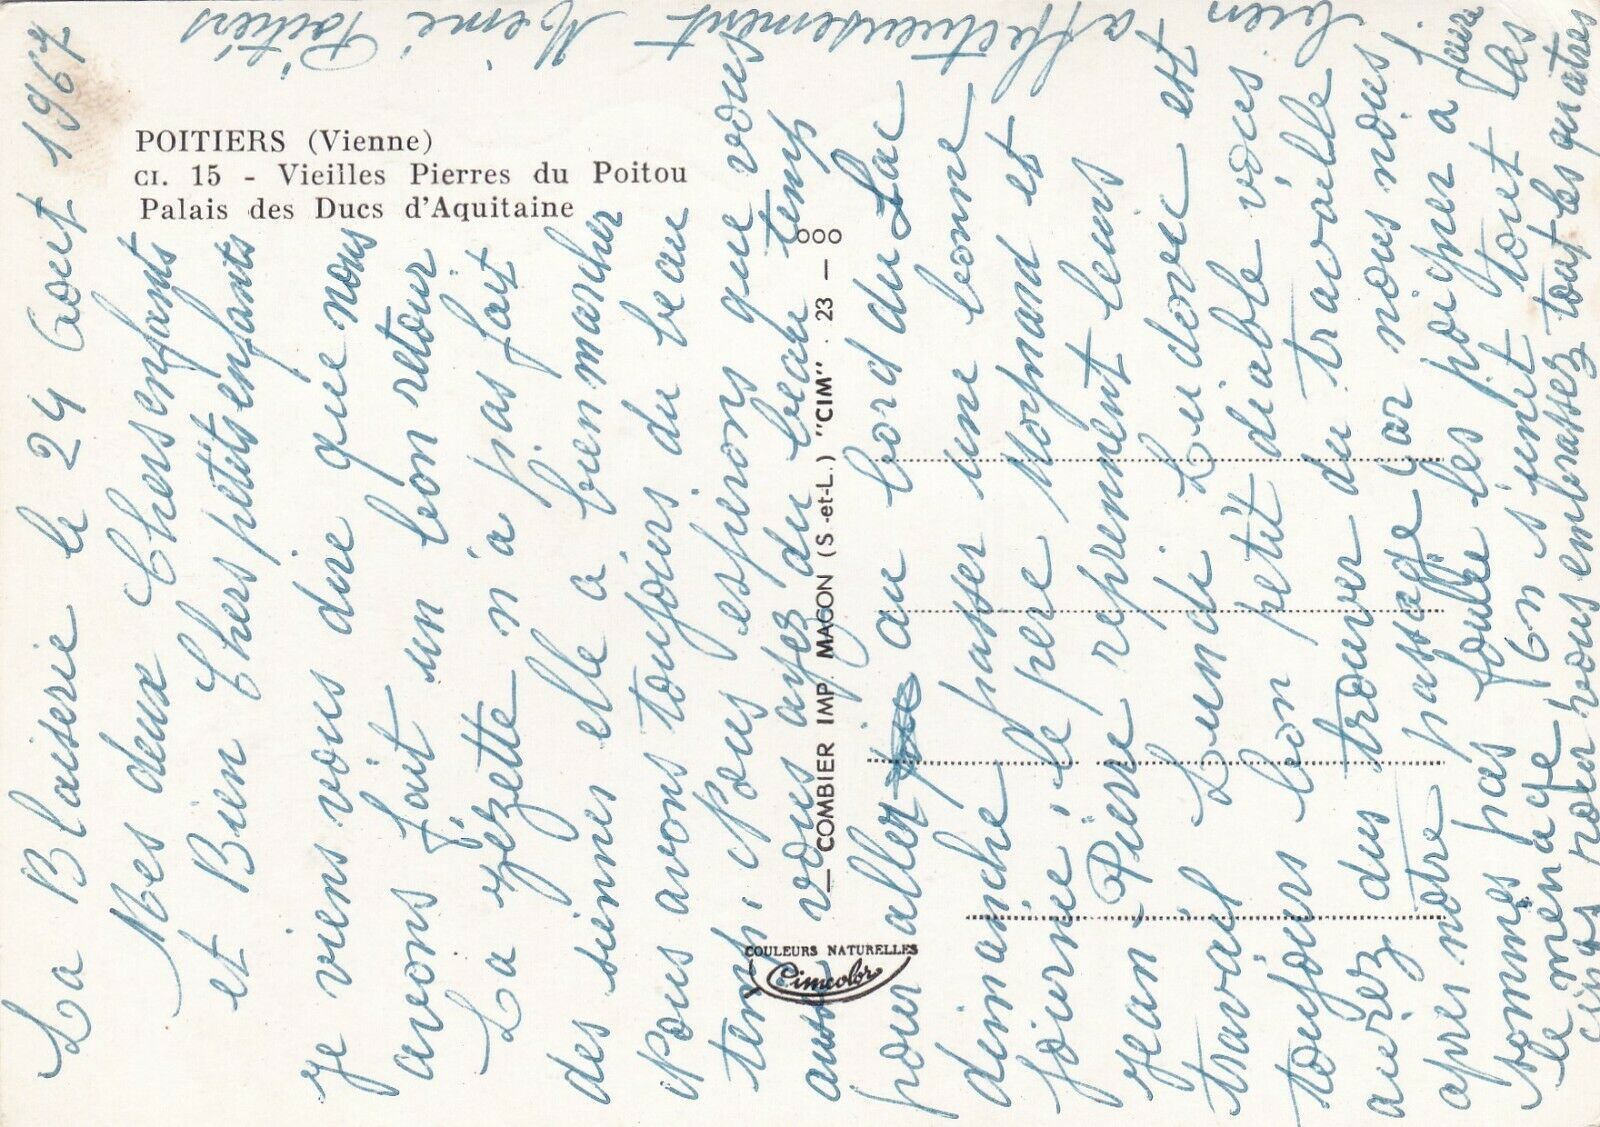 POITIERS (Vienne)
CI. 15 - Vieilles Pierres du Poitou
Palais des Ducs d'Aquitaine
COMBIER IMP. MACON (S.-et-L.) "CIM" . 23 — 000
COULEURS NATURELLES
Cimcolor
La Blaiserie le 24 Aout 1967
Mes deux Chers enfants
et Bien Chers petits enfants
je viens vous dire que nous
avons fait un bon retour
La zézette n'a pas fait
des siennes elle a bien marcher
Nous avons toujours du beau
temp. Nous esperons que vous
aussi vous ayez du beau temp
pour aller au bord du Lac
dimanche passer une bonne
journée, le pere Mormand et
Jean-Pierre reprennent leurs
travail Lundi Ludovic est
toujours bon petit diable vous
aurez dus trouver du travaille
apres notre passage car nous nous
sommes pas foulle les poigner a faire
le menage. On s'unit tout las
cinqs pour vous embrassez tout les quatres
bien affectueusement Mémé Poitiers